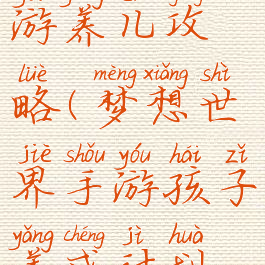 游养儿攻
lüè mèng xiǎng shì
略(梦想世
jiè shǒu yóu hái zǐ
界手游孩子
yǎng chéng jì huà
养成计划